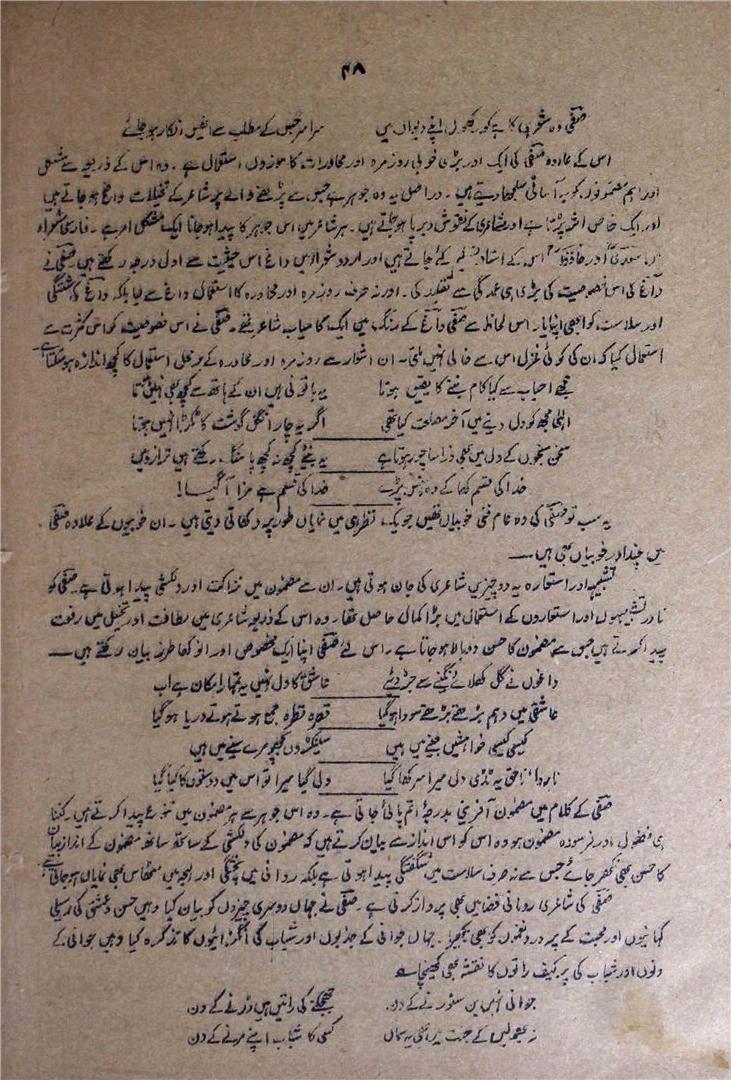 ۴۸
صفیؔ وہ شعر کو رکھوں اپنے دیواں میں سراسر جس کے مطلب سے انہیں انکار ہو جائے
اس کے علاوہ صفیؔ کی ایک اور بڑی خوبی روزمرہ اور محاورات کا موزوں استعمال ہے۔ وہ اس کے ذریعہ سے مشکل
اور اہم مضمونوں کو بہ آسانی سلجھا دیتے ہیں۔ دراصل یہ وہ جوہر ہے جس سے پڑھنے والے پر شاعر کے تخیلات واضح ہو جاتے ہیں
اور ایک خاص اثر پڑتا ہے اور شاعری کے نقوش دیرپا ہو جاتے ہیں۔ ہر شاعر میں اس جوہر کا پیدا ہو جانا ایک مشکل امر ہے۔ فارسی شعراء
میں سعدیؔ اور حافظؔ اس کے استاد تسلیم کئے جاتے ہیں اور اردو شعراء میں داغؔ اس حیثیت سے اول درجہ رکھتے ہیں صفیؔ نے
داغؔ کی اس خصوصیت کی بڑی ہی عمدگی سے تقلید کی۔ اور نہ صرف روزمرہ اور محاورہ کا استعمال داغؔ سے لیا بلکہ داغؔ کی شگفتگی
اور سلاست کو بھی اپنایا۔ اس لحاظ سے صفیؔ داغؔ کے رنگ میں ایک کامیاب شاعر تھے۔ صفیؔ نے اس خصوصیت کو اس کثرت سے
استعمال کیا کہ ان کی کوئی غزل اس سے خالی نہیں ملتی۔ ان اشعار سے روزمرہ اور محاورہ کے برمحل استعمال کا کچھ اندازہ ہو سکتا ہے
مجھے احباب سے کیا کام بننے کا یقیں ہوتا یہ باتونی ہیں ان کے ہاتھ سے کچھ بھی نہیں ہوتا
الٰہی مجھ کو دل دینے میں آخر مصلحت کیا تھی اگر یہ چار انگل گوشت کا ٹکڑا نہیں ہوتا
سخن سنجوں کے دل میں بھی ذرا سا چور ہوتا ہے یہ بنیے کچھ نہ کچھ پاسنگ رکھتے ہیں ترازو میں
خدا کی قسم کھا کے وہ ہنس پڑے خدا کی قسم ہے مزا آ گیا!
یہ سب تو صفیؔ کی وہ عام فنی خوبیاں تھیں جو یک نظر ہی میں نمایاں طور پر دکھائی دیتی ہیں۔ ان خوبیوں کے علاوہ صفیؔ
میں چند اور خوبیاں بھی ہیں۔
تشبیہہ اور استعارہ یہ دو چیزیں شاعری کی جان ہوتی ہیں۔ ان سے مضمون میں نزاکت اور دلکشی پیدا ہوتی ہے۔ صفیؔ کو
نادر تشبیہوں اور استعاروں کے استعمال میں بڑا کمال حاصل تھا۔ وہ اس کے ذریعہ شاعری میں لطافت اور تخیل میں رفعت
پیدا کرتے ہیں جس سے مضمون کا حسن دوبالا ہو جاتا ہے۔ اس لئے صفیؔ اپنا ایک مخصوص اور انوکھا طرز بیان رکھتے ہیں۔
داغوں نے گل کھلائے نگینے سے جڑ دیئے عاشق کا دل نہیں یہ تمہارا مکان ہے اب
عاشقی میں وہم بڑھتے بڑھتے سودا ہو گیا قطرہ قطرہ جمع ہوتے ہوتے دریا ہو گیا
کیسی کیسی خواہشیں جینے میں ہیں سینکڑوں کھچڑے مرے سینے میں ہیں
نامراد احق یہ ٹڈی دل میرا سر کھا گیا دل گیا میرا تو اس میں دوستوں کا کیا گیا
صفیؔ کے کلام میں مضمون آفرینی بدرجۂ اتم پائی جاتی ہے۔ وہ اس جوہر سے ہر مضمون میں تنوع پیدا کرتے ہیں۔ کتنا
ہی فضول اور فرسودہ مضمون ہو وہ اس کو اس انداز سے بیان کرتے ہیں کہ مضمون کی دلکشی کے ساتھ ساتھ مضمون کے انداز بیان
کا حسن بھی نکھر جائے جس سے نہ صرف سلاست میں شگفتگی پیدا ہوتی ہے بلکہ روانی میں پختگی اور لہجہ میں مٹھاس بھی نمایاں ہو جاتی ہے
صفیؔ کی شاعری رومانی فضا میں بھی پرواز کرتی ہے۔ صفیؔ نے جہاں دوسری چیزوں کو بیان کیا وہیں حسن و عشق کی رسیلی
کہانیوں اور محبت کے پر درد نغموں کو بھی چھیڑا۔ جہاں جوانی کے جذبوں اور شباب کی انگڑائیوں کا تذکرہ کیا وہیں جوانی کے
دنوں اور شباب کی پرکیف راتوں کا نقشہ بھی کھینچا ہے
جوانی بن سنورنے کے دن جھجکنے کی راتیں ہیں ڈرنے کے دن
نہ بھولیں گے جنت میں بھی یہ سماں کسی کا شباب اپنے مرنے کے دن